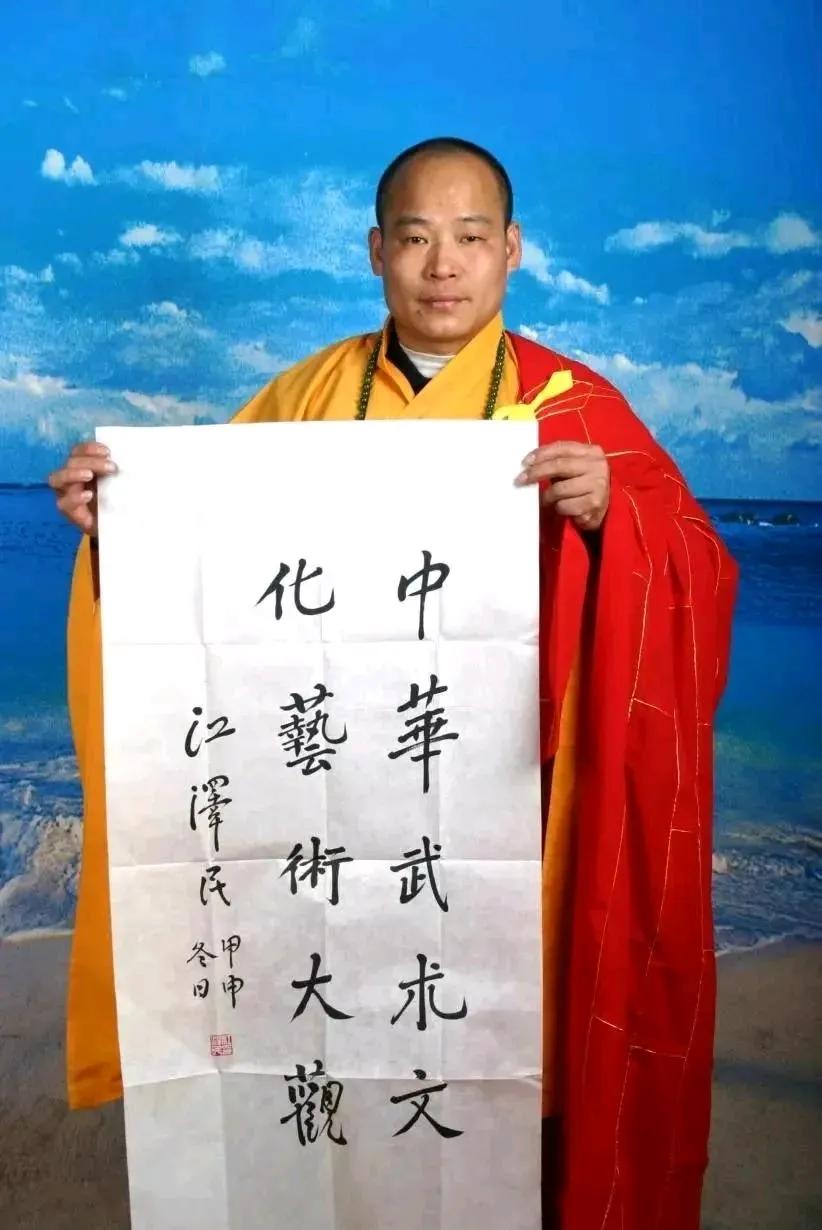 中華武术文
化藝術大觀
江澤民
甲申
冬日